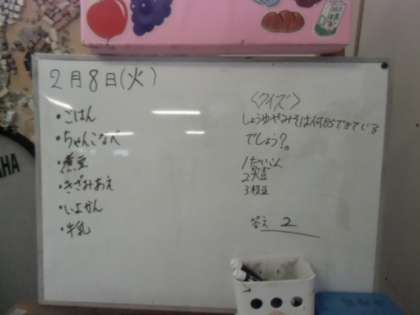 2月8日(火)
・ごはん
・ちゃんこなべ
・煮豆
・きざみあえ
・いよかん
・牛乳
<クイズ>
しょうゆやみそは何からできている
でしょう?。
1だいこん
2大豆
3枝豆
答え 2